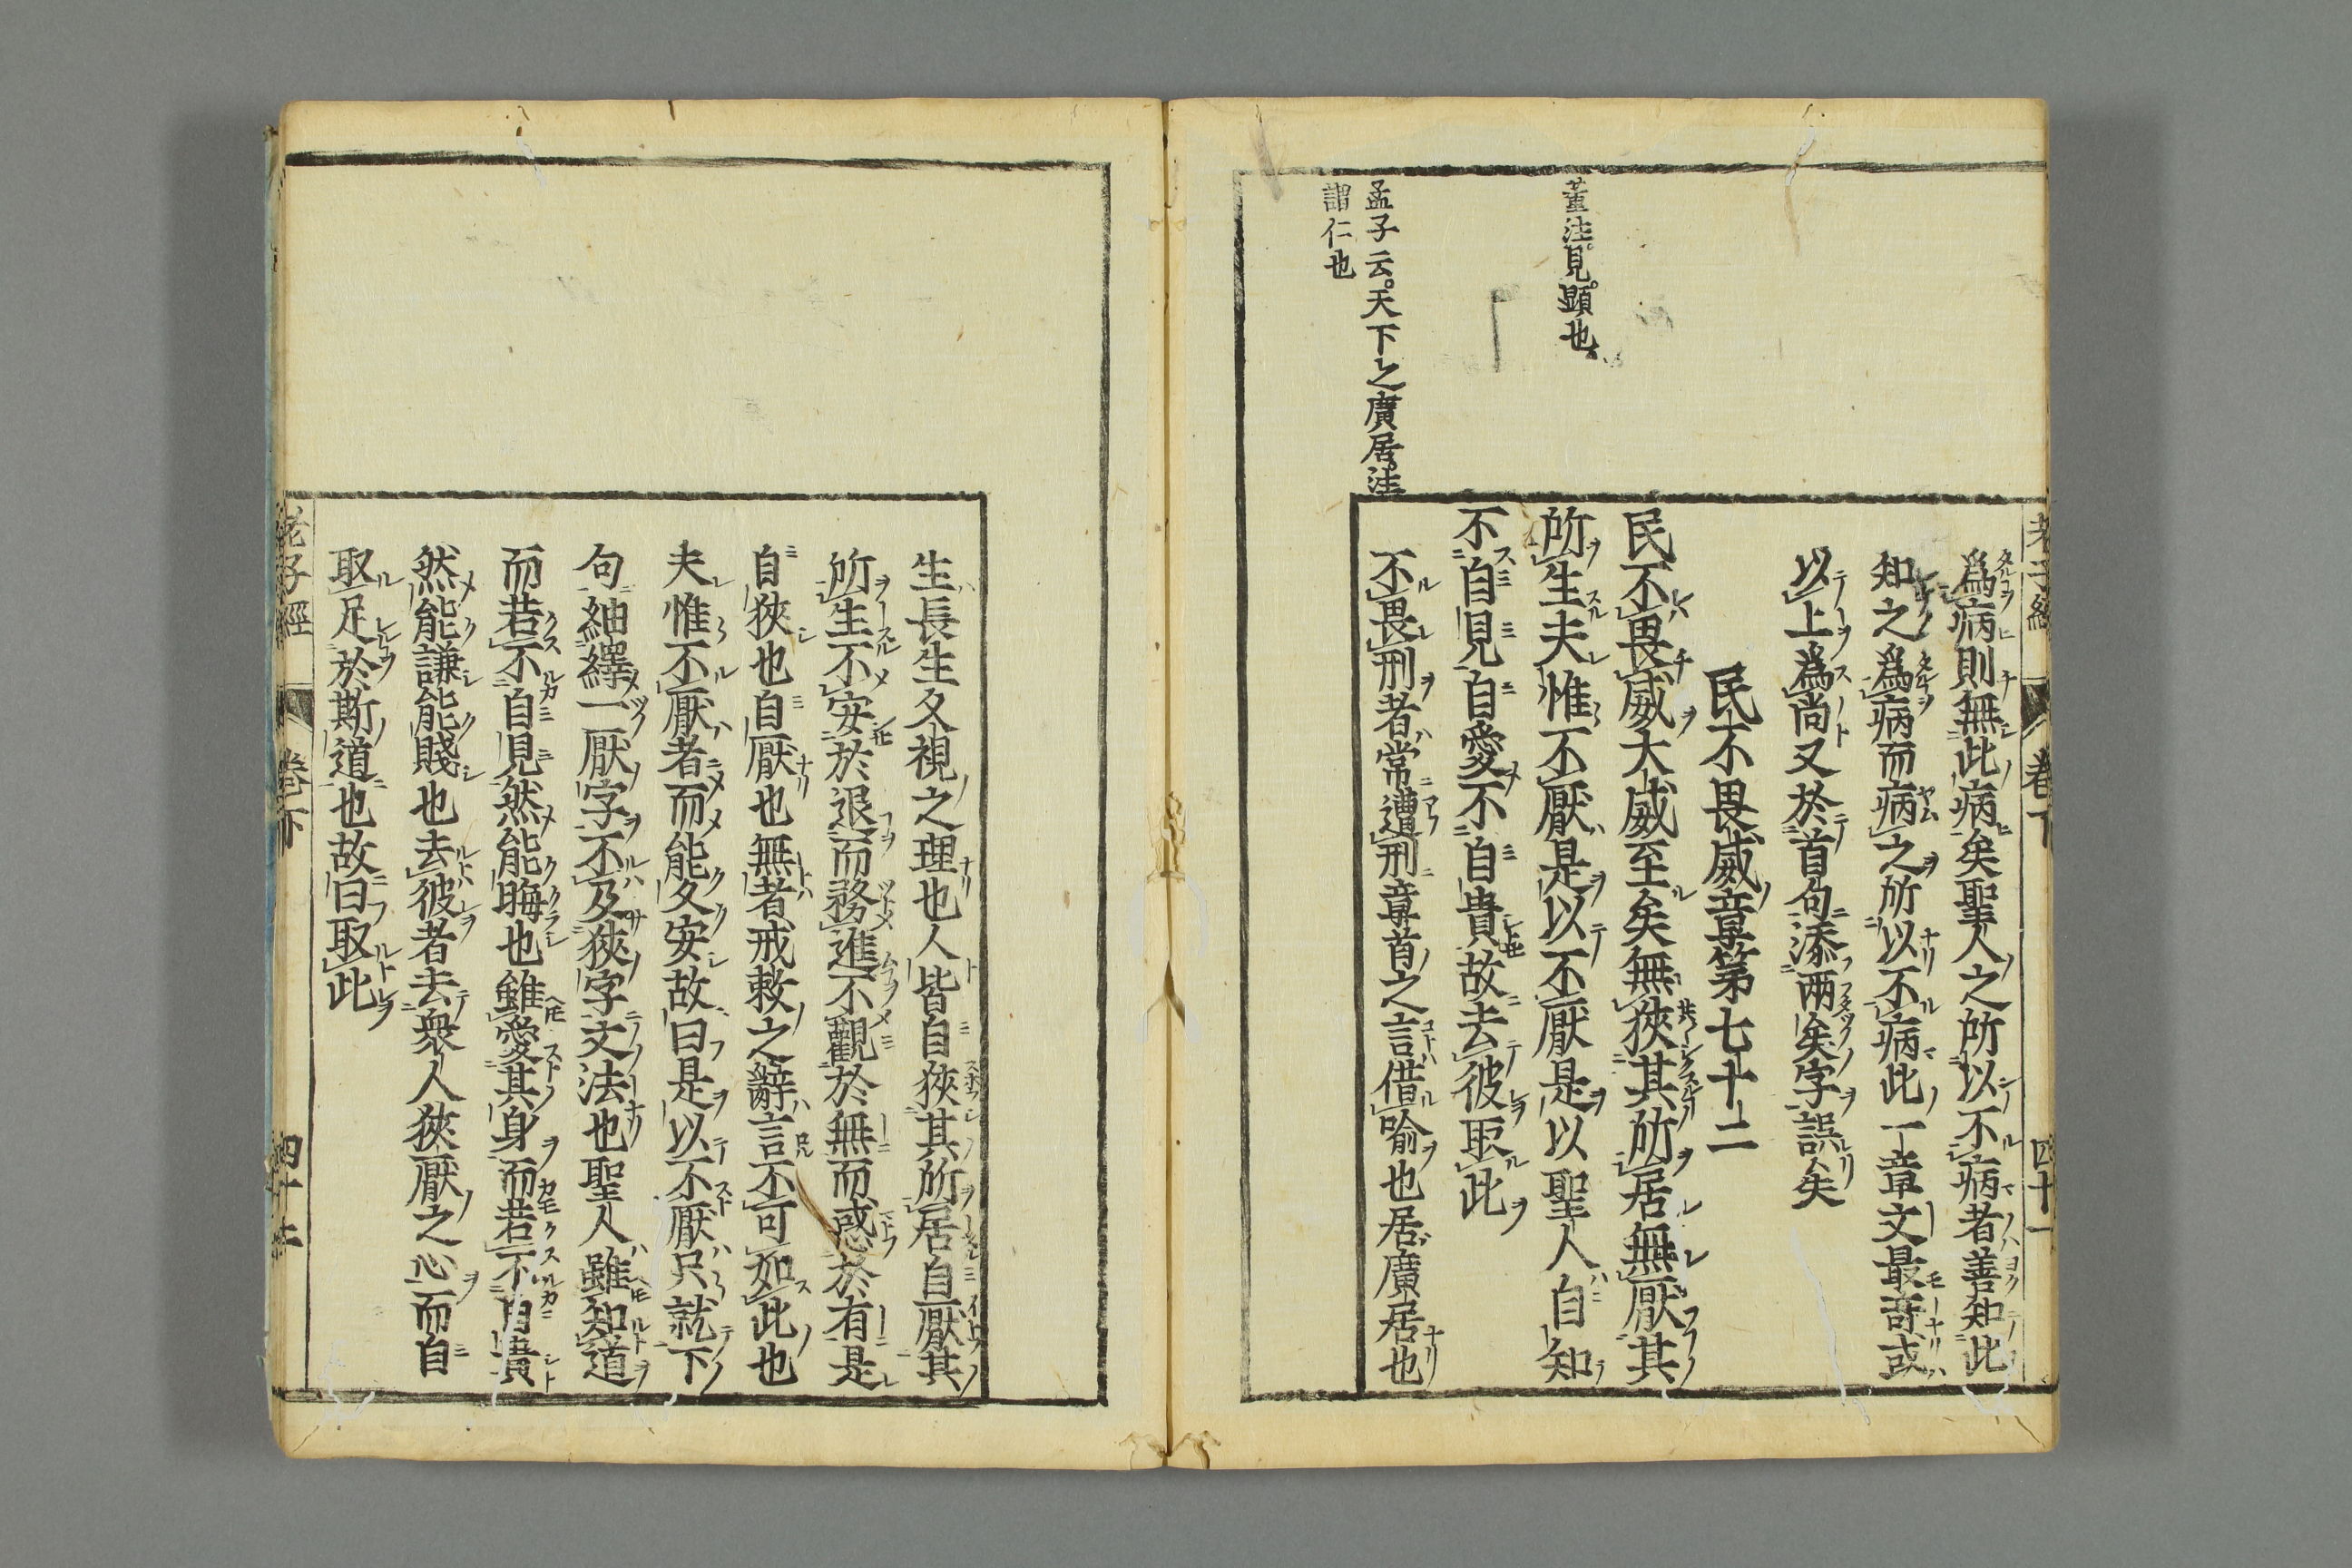 老子經 卷下 四十一
爲病則無此病矣聖人之所以不病者善知此
知之爲病而病之所以不病此一章文最奇或
以上爲尚又於首句添兩矣字誤矣
民不畏威章第七十二
民不畏威大威至矣無狹其所居無厭其
所生夫惟不厭是以不厭是以聖人自知
不自見自愛不自貴故去彼取此
不畏刑者常遭刑章首之言借喻也居廣居也
董注見顯也
孟子云天下之廣居注
謂仁也
生長生久視之理也人皆自狹其所居自厭其
所生不安於退而務進不觀於無而惑於有是
自狹也自厭也無者戒敕之辭言不可如此也
夫惟不厭者而能久安故曰是以不厭只就下
句紬繹一厭字不及狹字文法也聖人雖知道
而若不自見然能晦也雖愛其身而若不自貴
然能謙能賤也去彼者去衆人狹厭之心而自
取足於斯道也故曰取此
老子經 卷下 四十